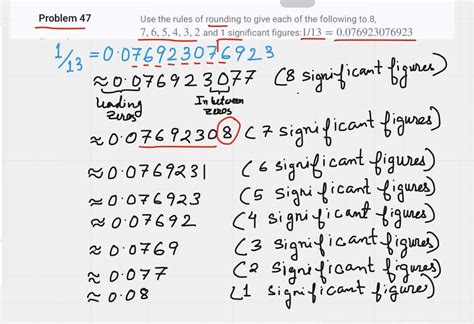 Problem 47
Use the rules of rounding to give each of the following to.8,
7, 6, 5, 4, 3, 2 and 1 significant figures:1/13 = 0.076923076923
1/13 = 0.076923076923
≈ 0.076923077 (8 significant figures)
Leading zeros
In between zeros
≈ 0.07692308 (7 significant figures)
≈ 0.0769231 (6 significant figures)
≈ 0.076923 (5 significant figures)
≈ 0.07692 (4 significant figures)
≈ 0.0769 (3 significant figures)
≈ 0.077 (2 significant figures)
≈ 0.08 (1 significant figure)